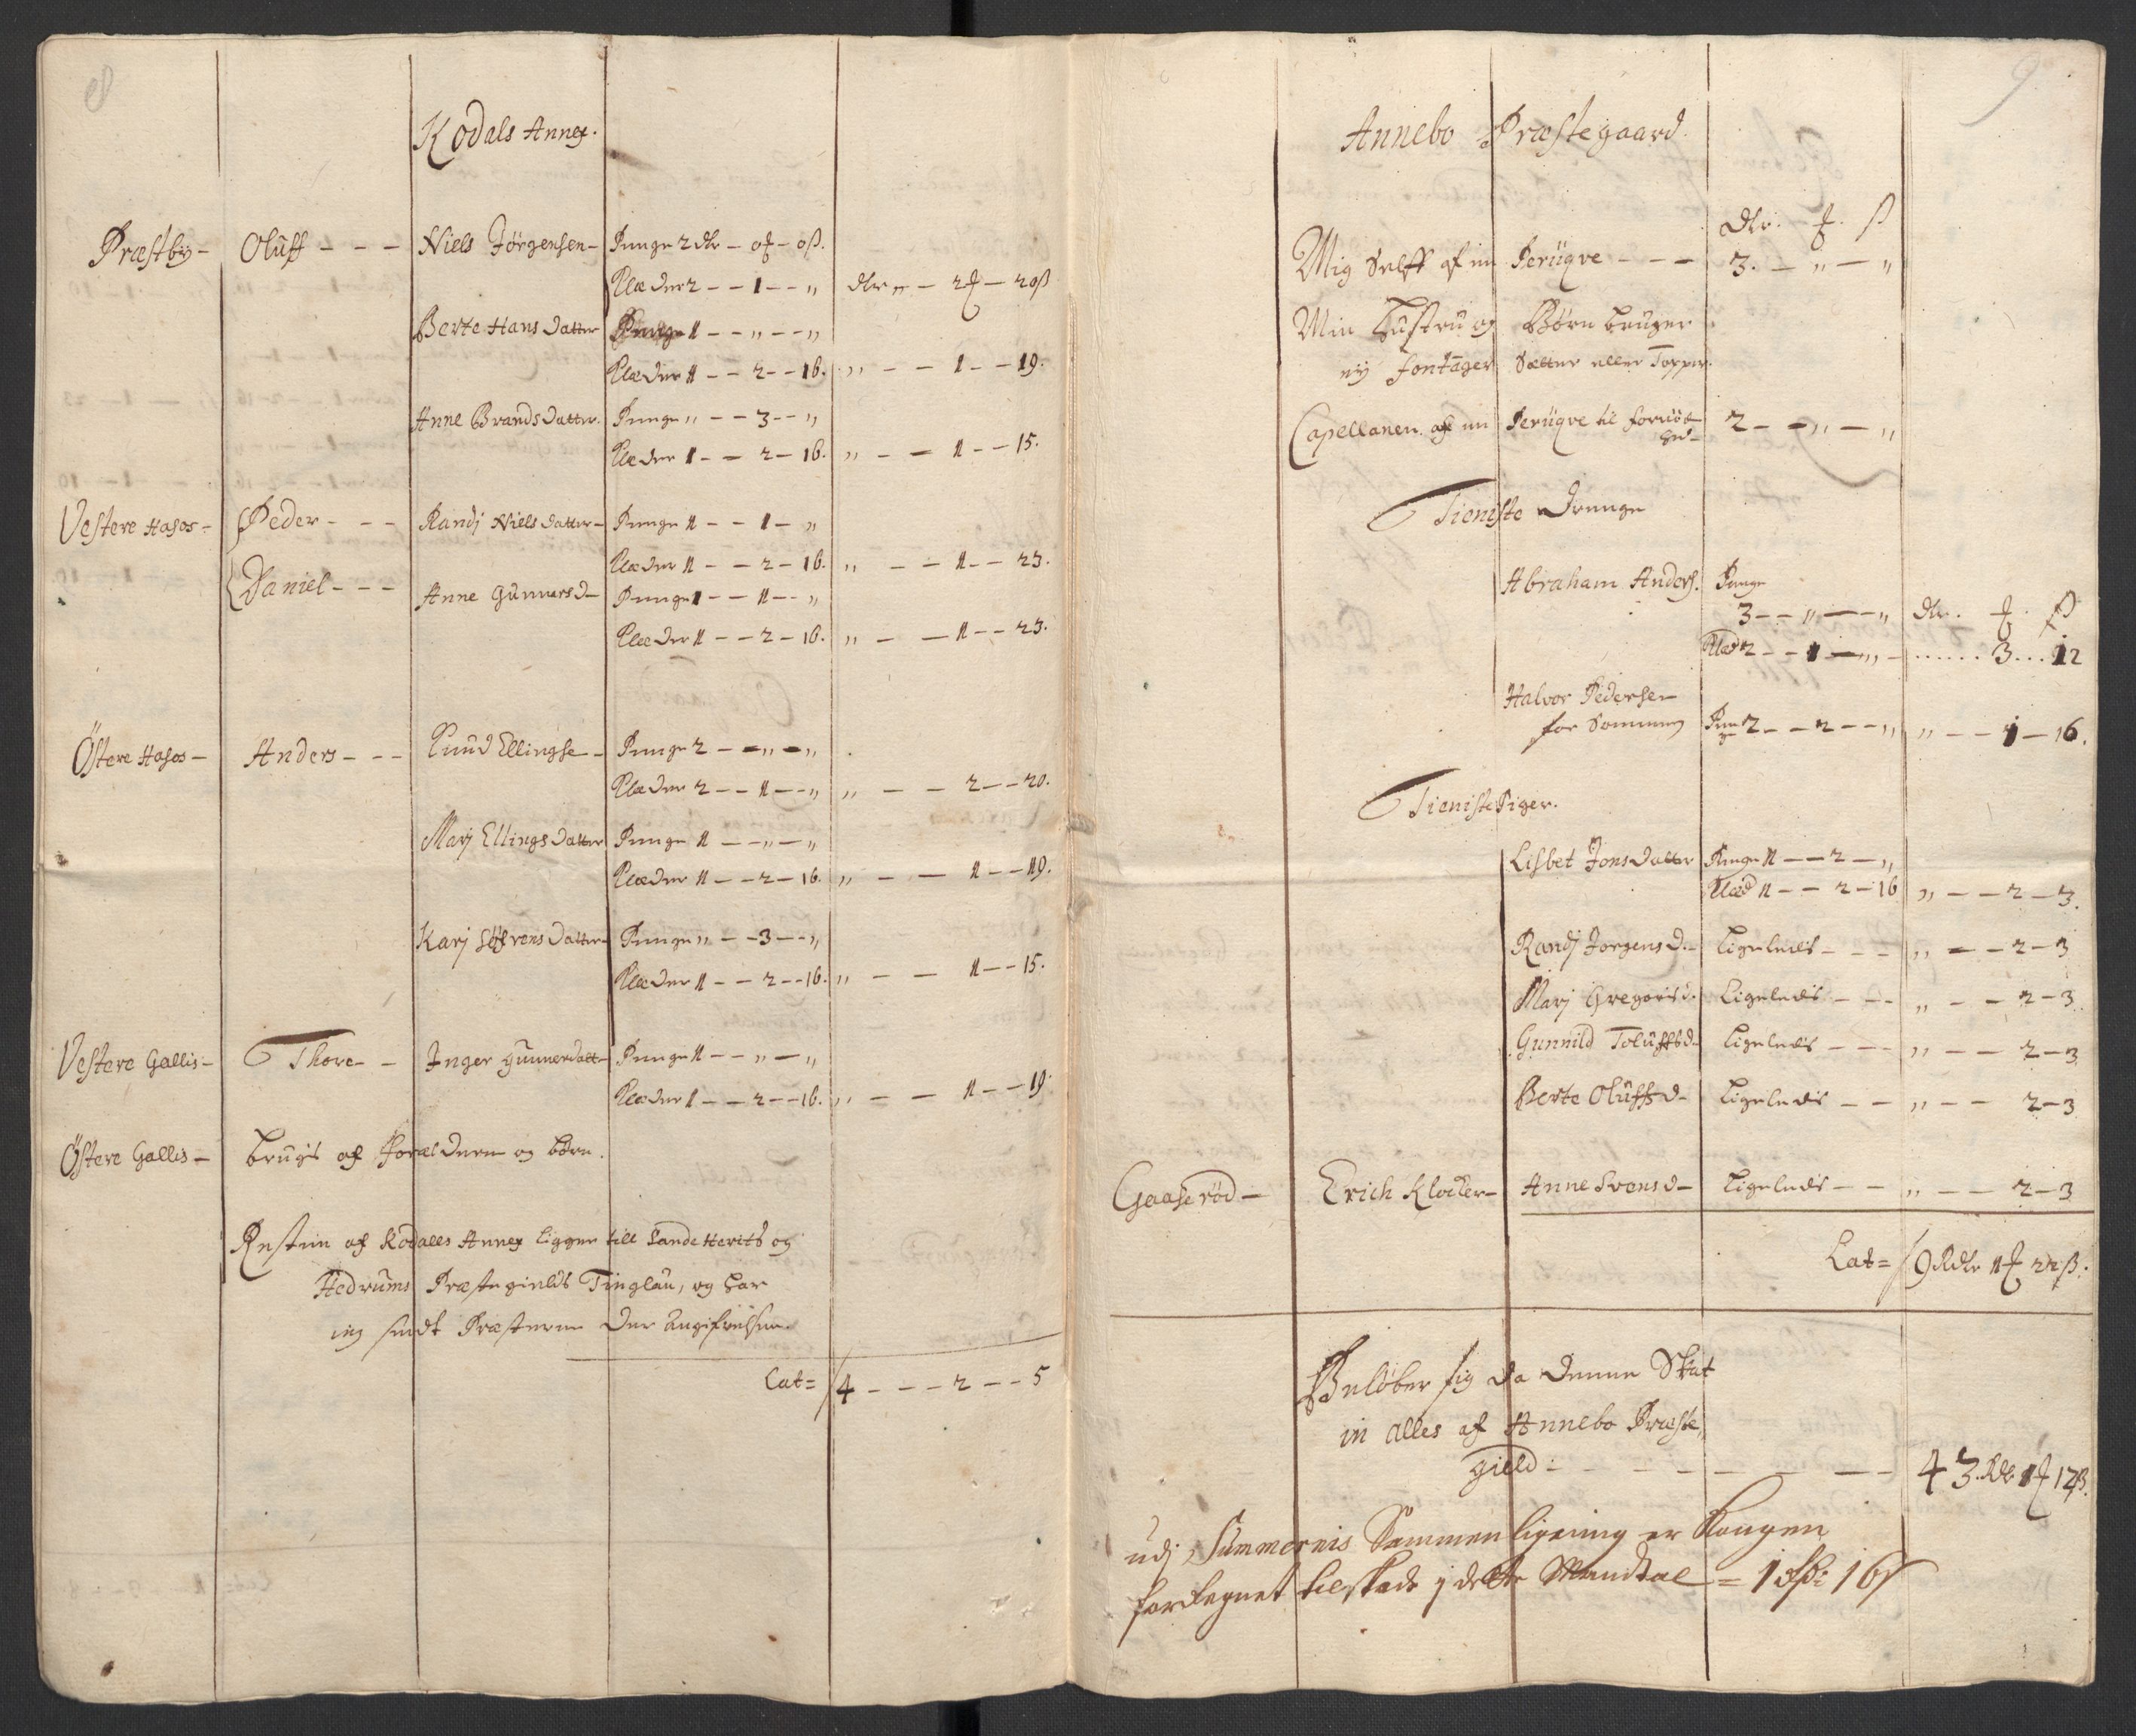 8
Kodals Annex.
Præstby - Oluff - - - Niels Jörgensen - Penge 2 dlr - o ƒ - o ß.
Klæder 2 - - 1 - - " dlr " - 2 ƒ - 20 ß
Berte Hans datter Penge 1 - - " - - "
Klæder 1 - - 2 - - 16. " - - 1 - - 19.
Anne Brands datter. Penge " - - 3 - - "
Klæder 1 - - 2 - 16. " - - 1 - - 15.
Vestere Hasos - Peder - - - Randj Niels datter - Penge 1 - - 1 - "
Klæder 1 - - 2 - 16. " - - 1 - - 23.
Daniel - - - Anne Gunnersd - Penge 1 - - 1 - - "
Klæder 1 - - 2 - 16. " - - 1 - - 23.
Östere Hasos - Anders - - - Knud Ellingse - Penge 2 - - " - "
Klæder 2 - - 1 - - " " - - 2 - - 20.
Marj Ellings datter Penge 1 - - " - "
Klæder 1 - - 2 - 16. " - - 1 - - 19.
Karj Söfrens datter - Penge " - - 3 - - "
Klæder 1 - - 2 - - 16. " - - 1 - - 15.
Vestere Gallis - Thore - - Inger Gunnerdatt - Penge 1 - - " - "
Klæder 1 - - 2 - - 16. " - - 1 - - 19.
Östere Gallis - brugis af Forældrene og börn.
Resten af Kodalls Annex ligger till Sande Herits og
Hedrums Præstegields Tinglau, og har
ieg sendt Præsterne der
Lat= 4 - - - 2 - - 5
9
Annebo Præstegaard.
dlr. ƒ. ß
Mig Selff af en Perüqve - - - 3. - " - "
Min Hustru og Börn bruger
ey fontager Sætter eller Topper.
Capellanen af en Perüqve til 2 - - " - "
Tieniste Drenge
Abraham Anders. Penge
3 - - " - - " dlr. ƒ. ß
Klæd 2 - - 1 - " - ...... 3 ... 12
Halvor Pedersen
for Sommeren Penge 2 - - 2 - - " " - - 1 - 16.
Tieniste Piger.
Lisbet Jons datter Penge 1 - - 2 - "
Klæd 1 - - 2 - 16 " - - 2 - 3.
Randj Jorgens d. - Ligeledis - - - " - - 2 - 3
Marj Gregoris d. Ligeledis - - - " - - 2 - 3.
Gunnild Toluffsd - Ligeledis - - - " - - 2 - 3
Berte Oluffsd - Ligeledis - - " - - 2 - 3
Gaaseröd - Erich Klocker - Anne Svensd - Ligeledis - - " - - 2 - 3
Lat= 9 Rdlr 1 ƒ 22 ß.
Belöber sig da denne Skat
in alles af Annebo Præste,
gield - - - - - - - 43. Rdlr 1 ƒ 12 ß.
udj Summernis Sammenligning er Kongen
forregnet till skade j dette Mandtal = 1 16 ß